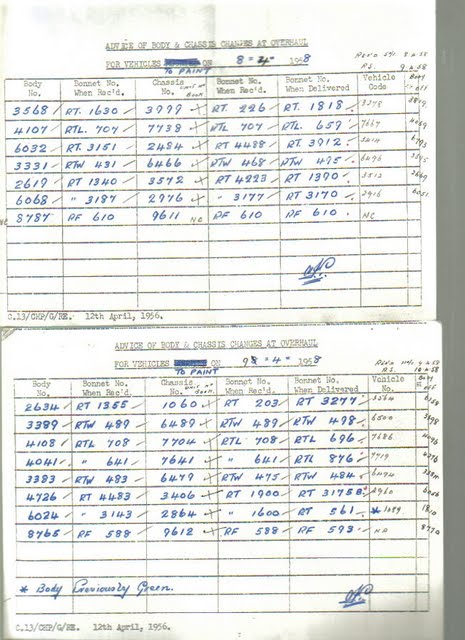 ADVICE OF BODY & CHASSIS CHANGES AT OVERHAUL
FOR VEHICLES ON 8 - 4 - 1958
TO PAINT
9.4.58
Body No. Bonnet No. When Rec'd. Chassis No. Bonnet No. When Rec'd. Bonnet No. When Delivered Vehicle Code Body
3568 RT. 1630 3999 RT. 226 RT. 1818. 3378
4107 RTL. 707 7738 RTL 707 RTL. 659 7667
6032 RT. 3151 2484 RT 4488 RT. 3912.
3331 RTW 431 6466 RTW 468 RTW 495. 6496
2619 RT 1340 3572 RT 4223 RT 1390. 3512
6068 " 3187 2976 " 3177 RT 3170. 2916
NC 8787 RF 610 9611 NC RF 610 RF 610. NC
C.13/CHP/G/RE. 12th April, 1956.
ADVICE OF BODY & CHASSIS CHANGES AT OVERHAUL
FOR VEHICLES ON 98 - 4 - 1958
TO PAINT
Body No. Bonnet No. When Rec'd. Chassis No. Bonnet No. When Rec'd. Bonnet No. When Delivered Vehicle No. Body
2634 RT 1355 1060 RT 203 RT 3277.
3389 RTW 489 6489 RTW 489 RTW 498. 6500
4108 RTL 708 7704 RTL 708 RTL 696. 7686
4041 " 641 7641 " 641 RTL 876 7719
3383 RTW 483 6479 RTW 475 RTW 484. 6494
4726 RT 4483 3406 RT 1900 RT 3175 2960
6024 " 3143 2864 " 1600 RT 561. * 1810
8765 RF 588 9612 RF 588 RF 593. NA 8770
* Body Previously Green.
C.13/CHP/G/RE. 12th April, 1956.